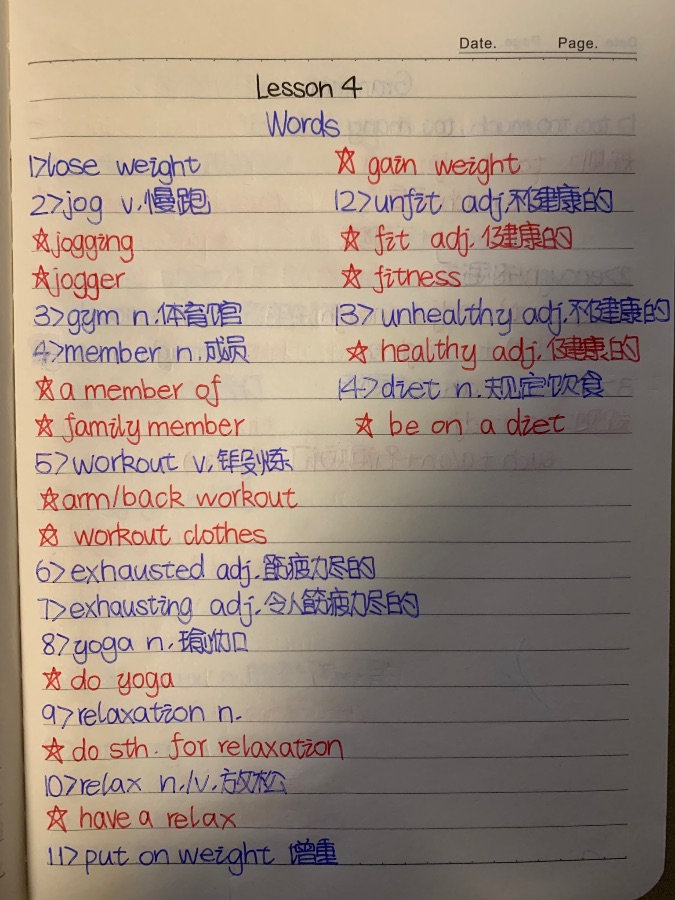 Date. Page.
Lesson 4
Words
1>lose weight
2>jog v.慢跑
☆jogging
☆jogger
3>gym n.体育馆
4>member n.成员
☆a member of
☆family member
5>workout v.锻炼
☆arm/back workout
☆ workout clothes
6>exhausted adj.筋疲力尽的
7>exhausting adj.令人筋疲力尽的
8>yoga n.瑜伽
☆ do yoga
9>relaxation n.
☆ do sth. for relaxation
10>relax n./v.放松
☆ have a relax
11>put on weight 增重
☆ gain weight
12>unfit adj.不健康的
☆ fit adj.健康的
☆ fitness
13>unhealthy adj.不健康的
☆ healthy adj.健康的
14>diet n.规定饮食
☆ be on a diet